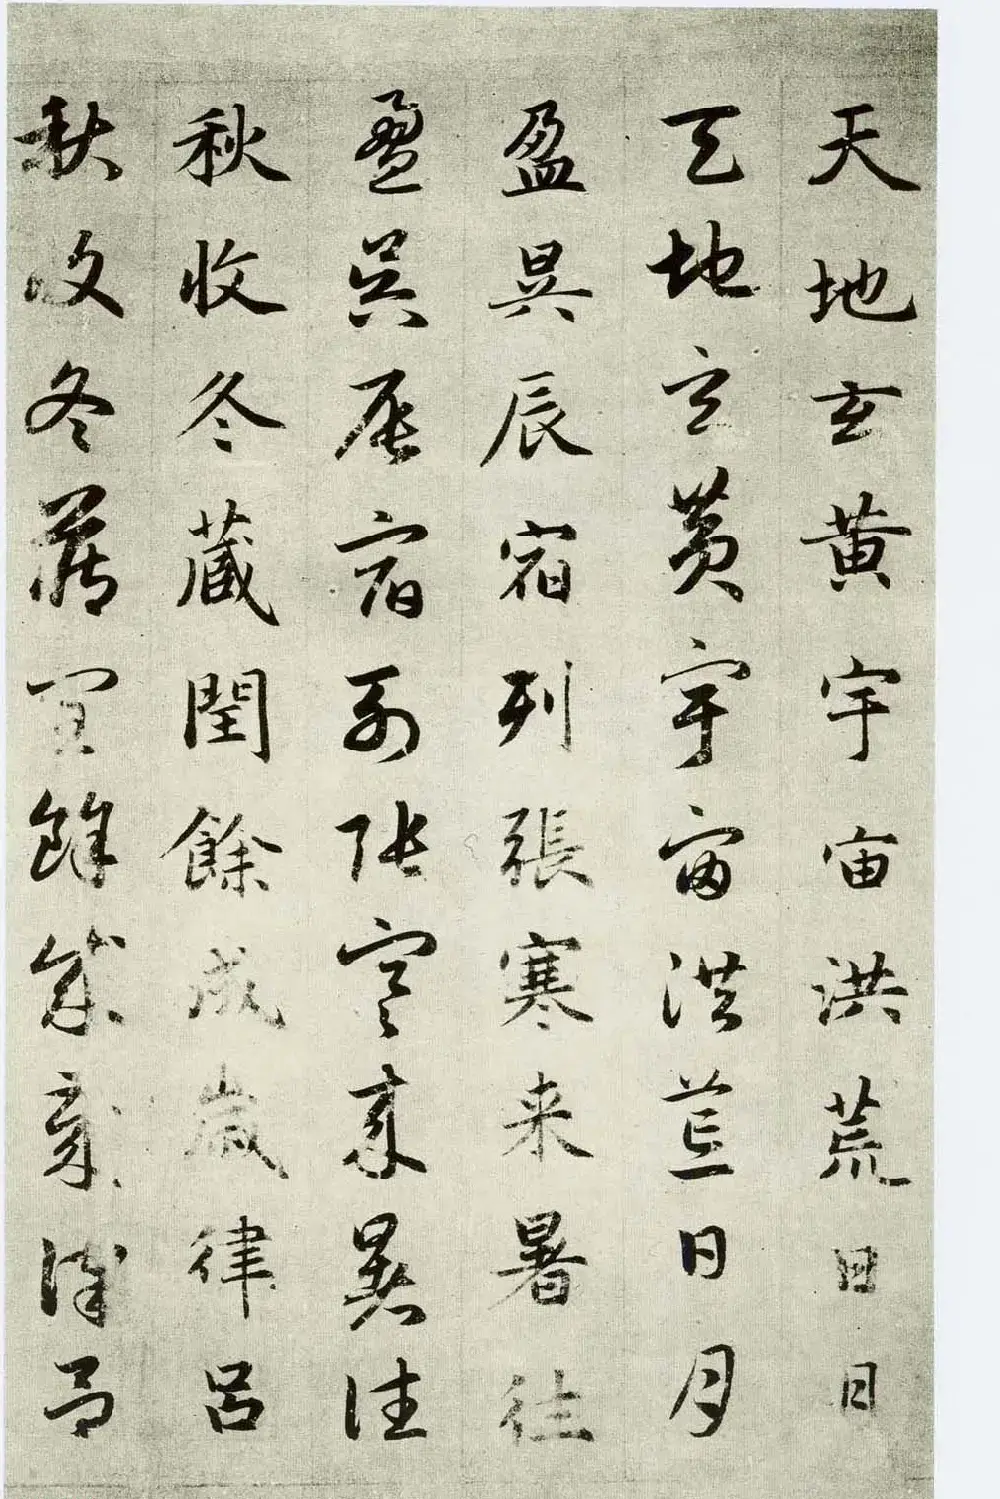 天地玄黄宇宙洪荒日日
天地玄黄宇宙洪荒日月
盈昃辰宿列張寒来暑往
盈昃辰宿列張寒来暑往
秋收冬藏閏餘成歲律呂
秋收冬藏閏餘成歲律呂